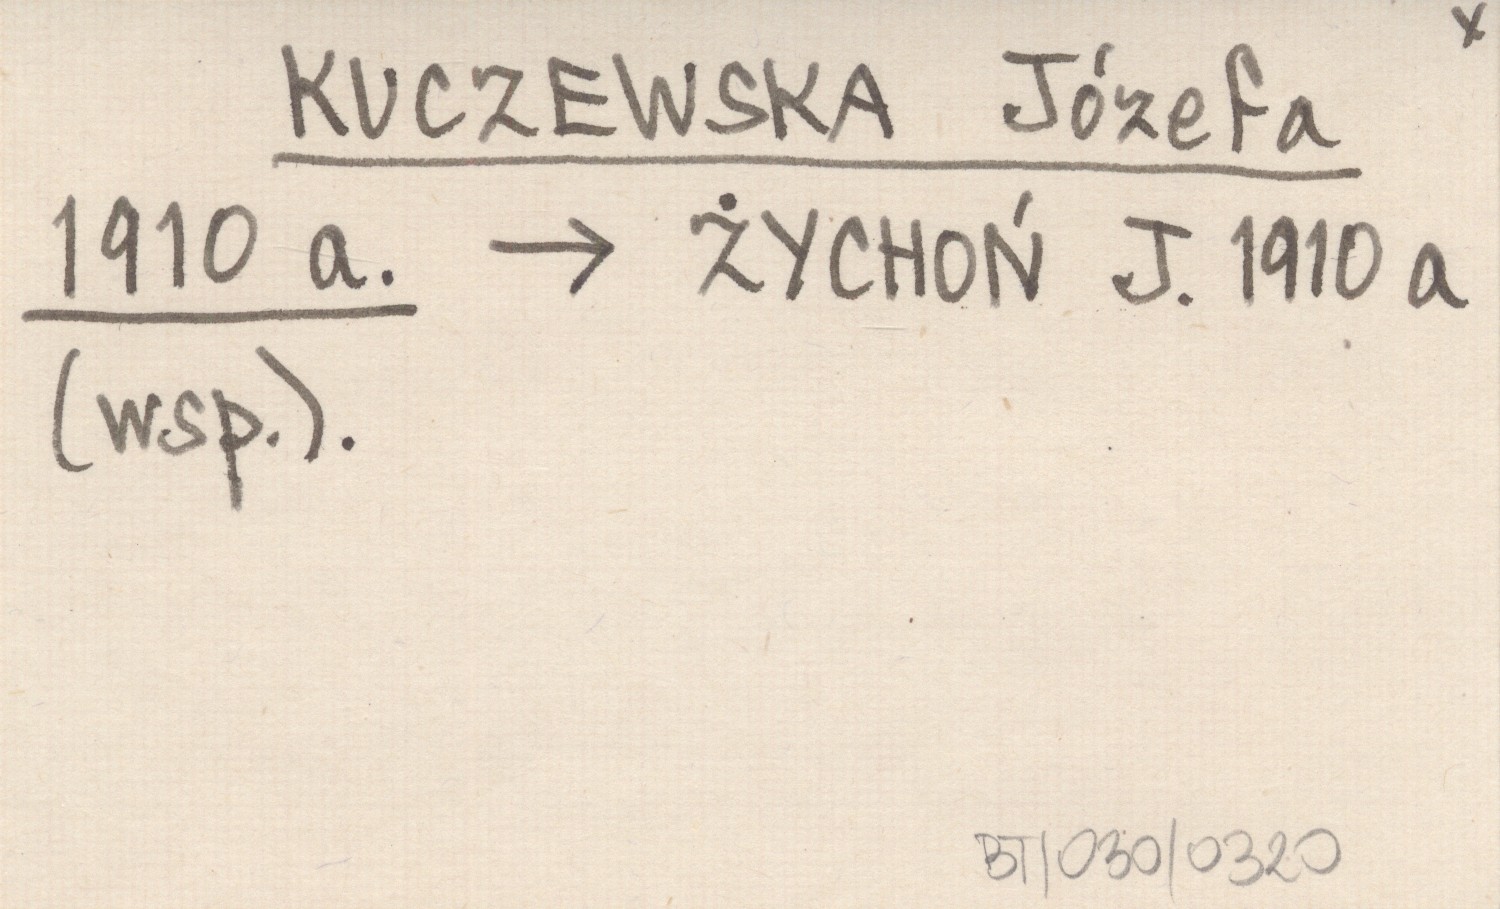 x
KUCZEWSKA Józefa
1910 a. → ŻYCHOŃ J. 1910 a
(wsp.).
BT/030/0320